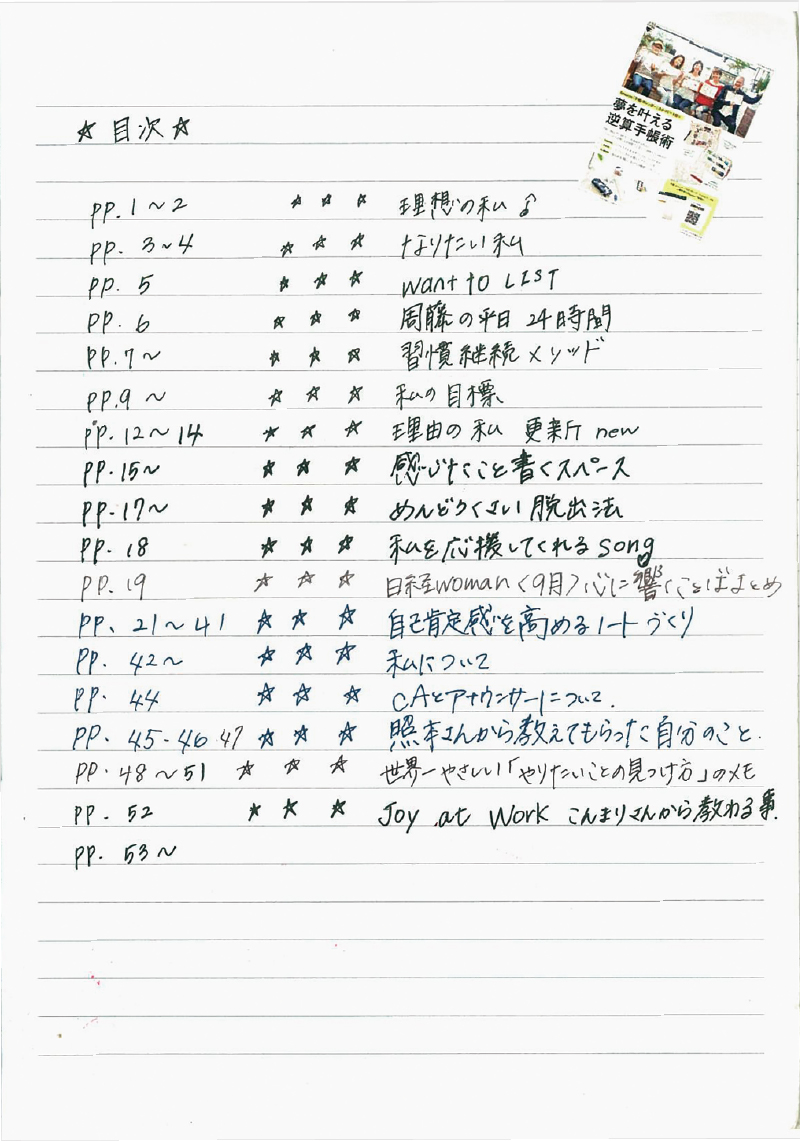 夢を叶える
逆算手帳術
☆ 目次 ☆
pp. 1～2 ☆ ☆ ☆ 理想の私
pp. 3～4 ☆ ☆ ☆ なりたい私
pp. 5 ☆ ☆ ☆ want to LIST
pp. 6 ☆ ☆ ☆ 周藤の平日 24時間
pp. 7～ ☆ ☆ ☆ 習慣継続メソッド
pp. 9 ～ ☆ ☆ ☆ 私の目標、
pp. 12～14 ☆ ☆ ☆ 理由の私 更新 new
pp. 15～ ☆ ☆ ☆ 感じたこと書くスペース
pp. 17～ ☆ ☆ ☆ めんどうくさい脱出法
pp. 18 ☆ ☆ ☆ 私を応援してくれるsong
pp. 19 ☆ ☆ ☆ 日経woman〈9月〉心に響くことばまとめ
pp. 21～41 ☆ ☆ ☆ 自己肯定感を高めるノートづくり
pp. 42～ ☆ ☆ ☆ 私について
pp. 44 ☆ ☆ ☆ CAとアナウンサーについて.
pp. 45-46 47 ☆ ☆ ☆ 照本さんから教えてもらった自分のこと.
pp. 48～51 ☆ ☆ ☆ 世界一やさしい「やりたいことの見つけ方」のメモ
pp. 52 ☆ ☆ ☆ Joy at Work こんまりさんから教わる事.
pp. 53～